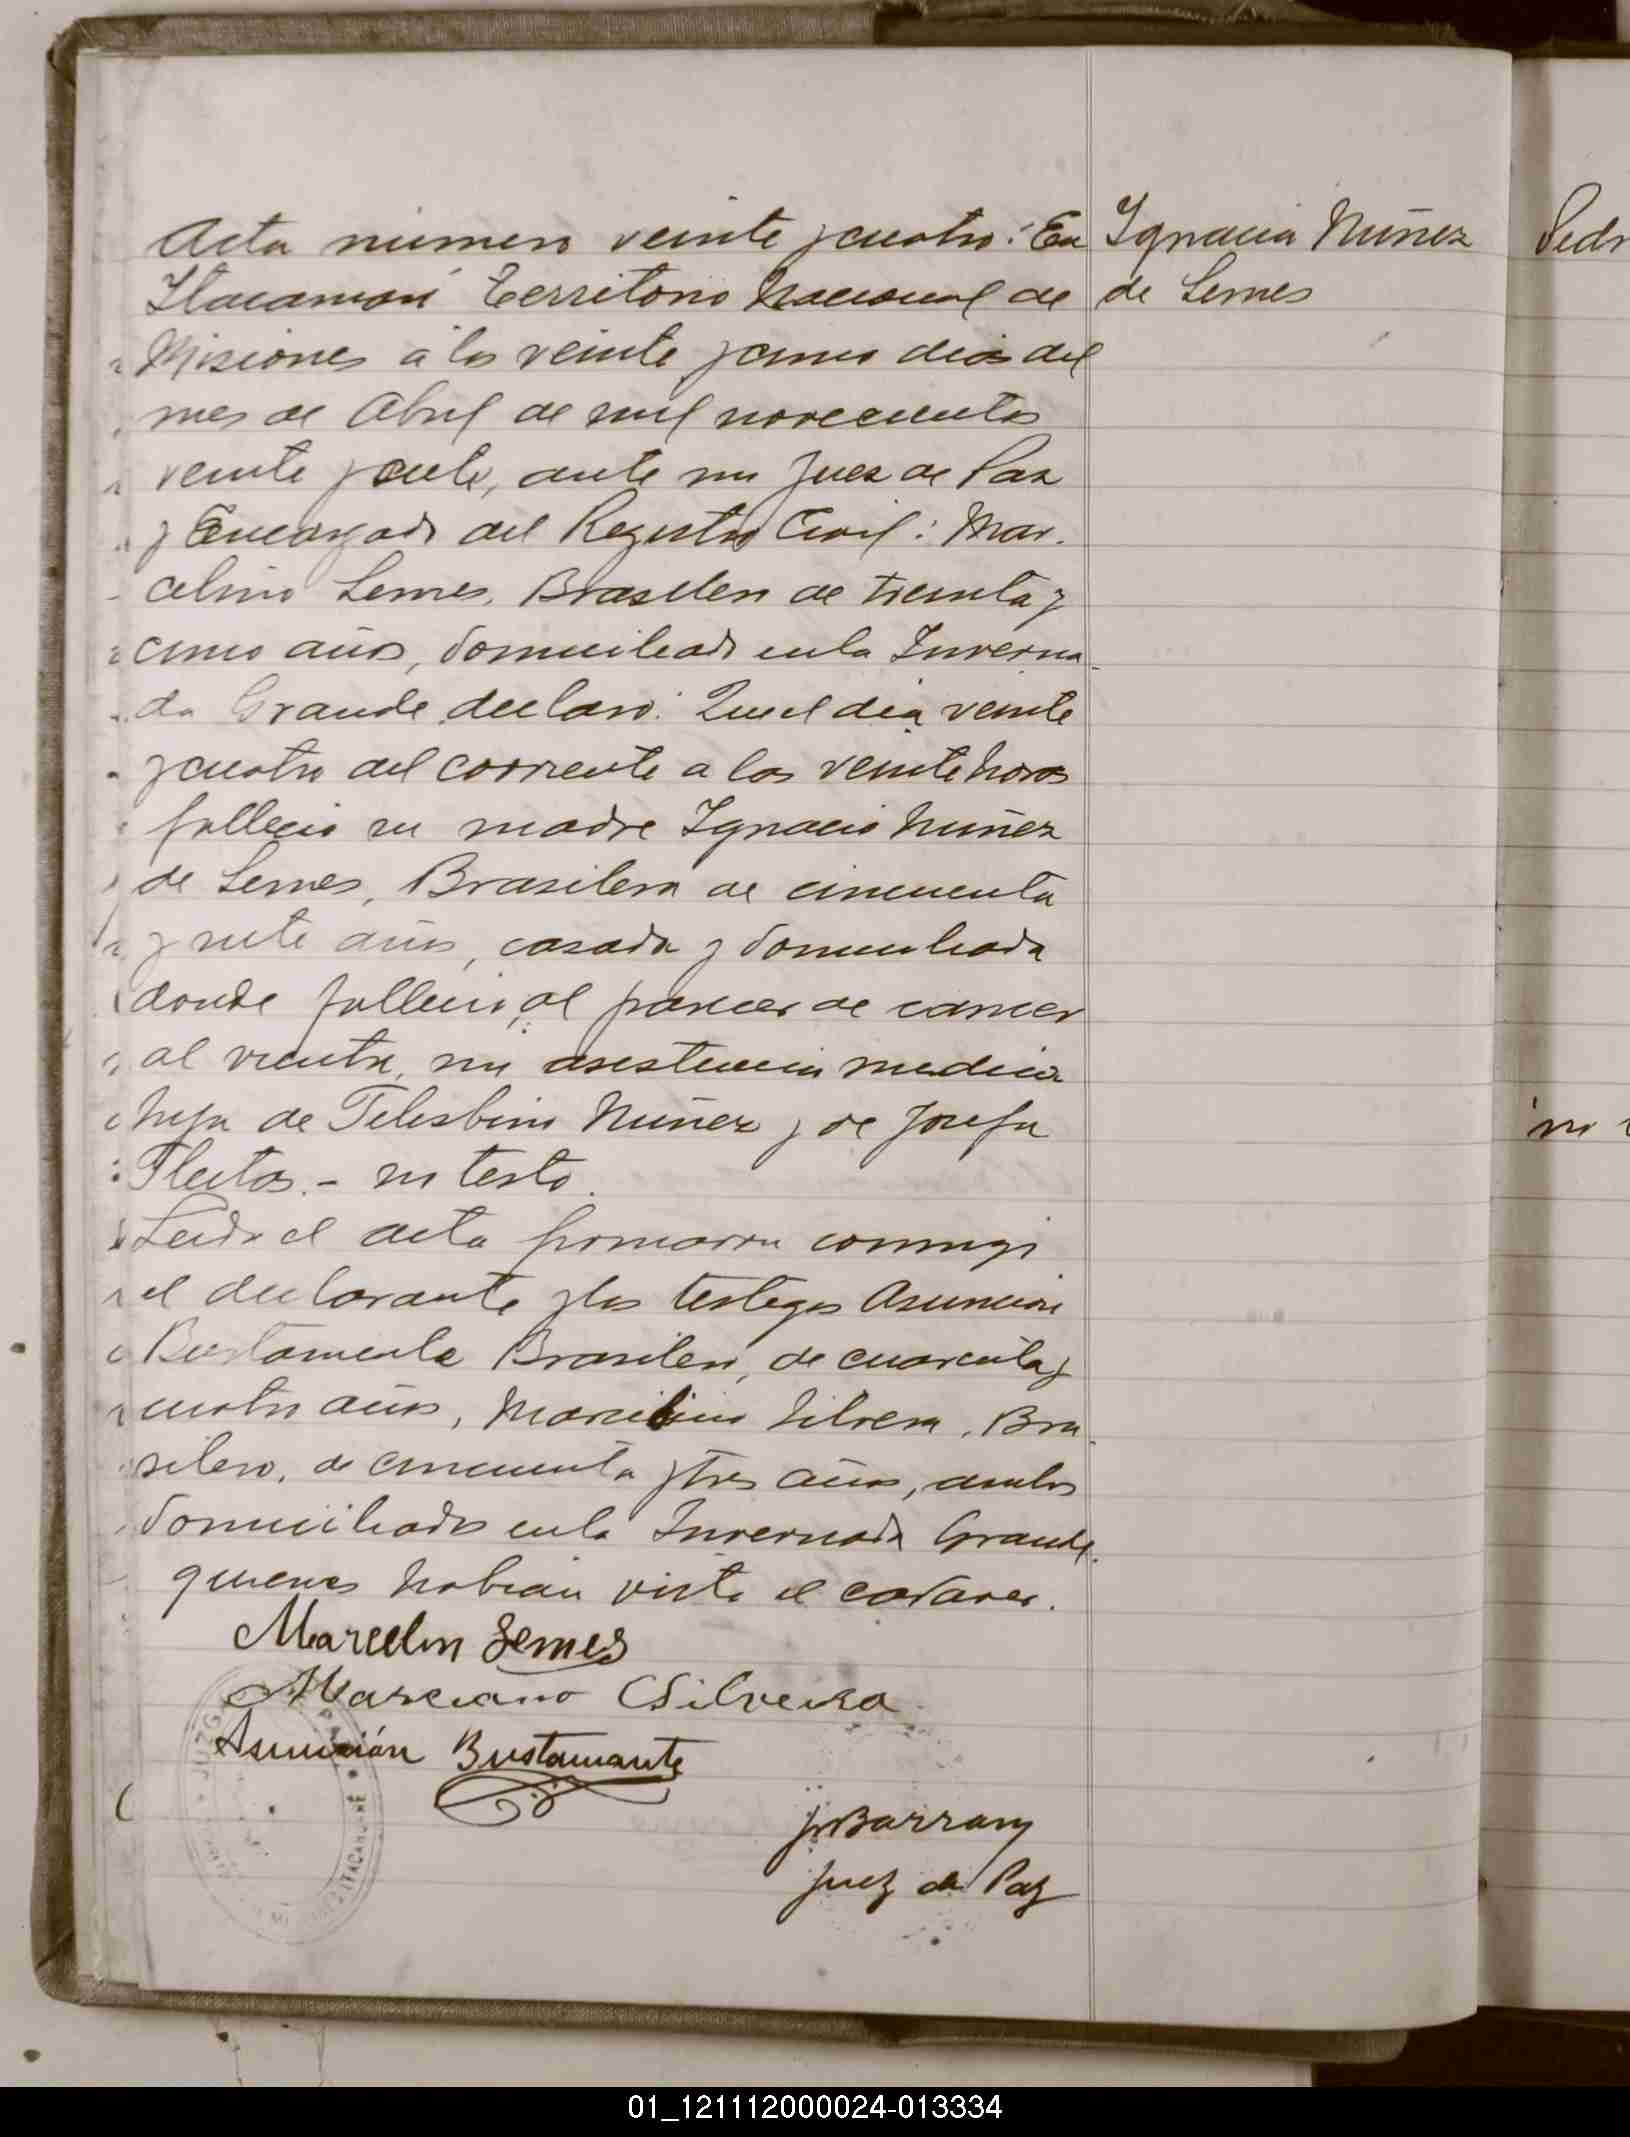 Acta número veinte y cuatro: En
Itacaruaré Territorio Nacional de
Misiones á los veinte y cinco dias del
mes de Abril de mil novecientos
veinte y siete, ante mi Juez de Paz
y Encargado del Registro Civil: Mar-
celino Lemes, Brasilero de treinta y
cinco años, domiciliado en la Inverna-
da Grande declaró: Que el dia veinte
y cuatro del corriente a las veinte horas
fallecio su madre Ignacia Nuñez
de Lemes, Brasilera de cincuenta
y siete años, casada y domiciliada
donde fallecio, al parecer de cancer
al vientre, sin asistencia medica
hija de Telesbino Nuñez y de Josefa
Fleitas.- no testo.
Leida el acta firmaron conmigo
el declarante y los testigos Asuncion
Bustamente Brasilero, de cuarenta y
cuatro años, Silvera, Bra-
silero, de cincuenta y tres años, ambos
domiciliados en la Invernada Grande.
quienes habian visto el cadaver.
Marcelin Lemes
Marciano CSilveira
Asunción Bustamante
Barrary
Juez de Paz
Ignacia Nuñez
de Lemes
Pedr
JUZG PAZ ITACARUARÉ
01_121112000024-013334